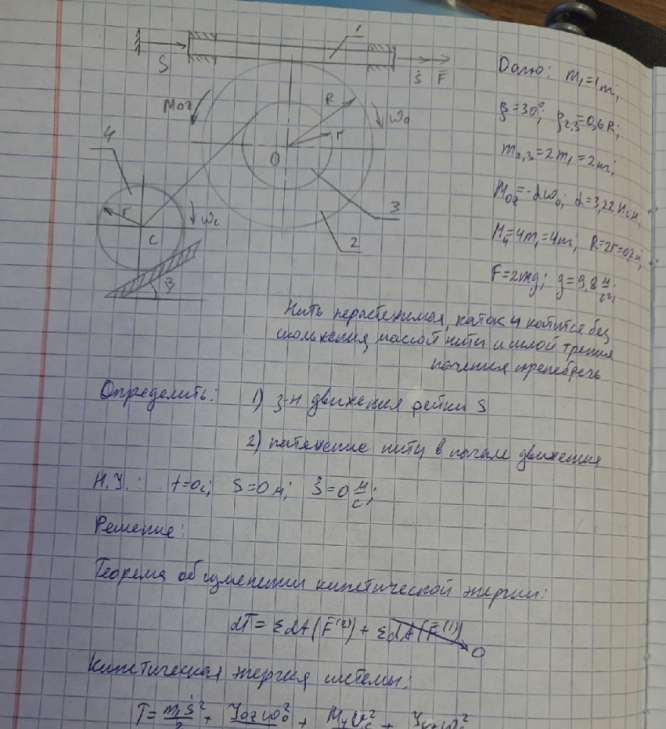 1
S
Ṡ F̄
R
M₀z
ω₀
4
r
O
r
ω_c
C
3
2
β
Дано: m₁=1m;
β=30°; ρ₂,₃=0,6R;
m₂,₃=2m₁=2m;
M₀z=-αω₀; α=3,22 Н·с·м;
M₄=4m₁=4m; R=2r=0,2м;
F=2mg; g=9,8 м/с²;
Нить нерастяжимая, каток 4 катится без
скольжения, массой нити и силой трения
качения пренебречь
Определить: 1) з-н движения рейки S
2) натяжение нити в начале движения
Н.У.: t=0с; S=0м; Ṡ=0 м/с;
Решение:
Теорема об изменении кинетической энергии:
dT = ΣdA(F̄⁽ᵉ⁾) + ΣdA(F̄⁽ⁱ⁾) 0
Кинетическая энергия системы:
T = m₁Ṡ²/2 + J₀zω₀² + M₄V_c² +